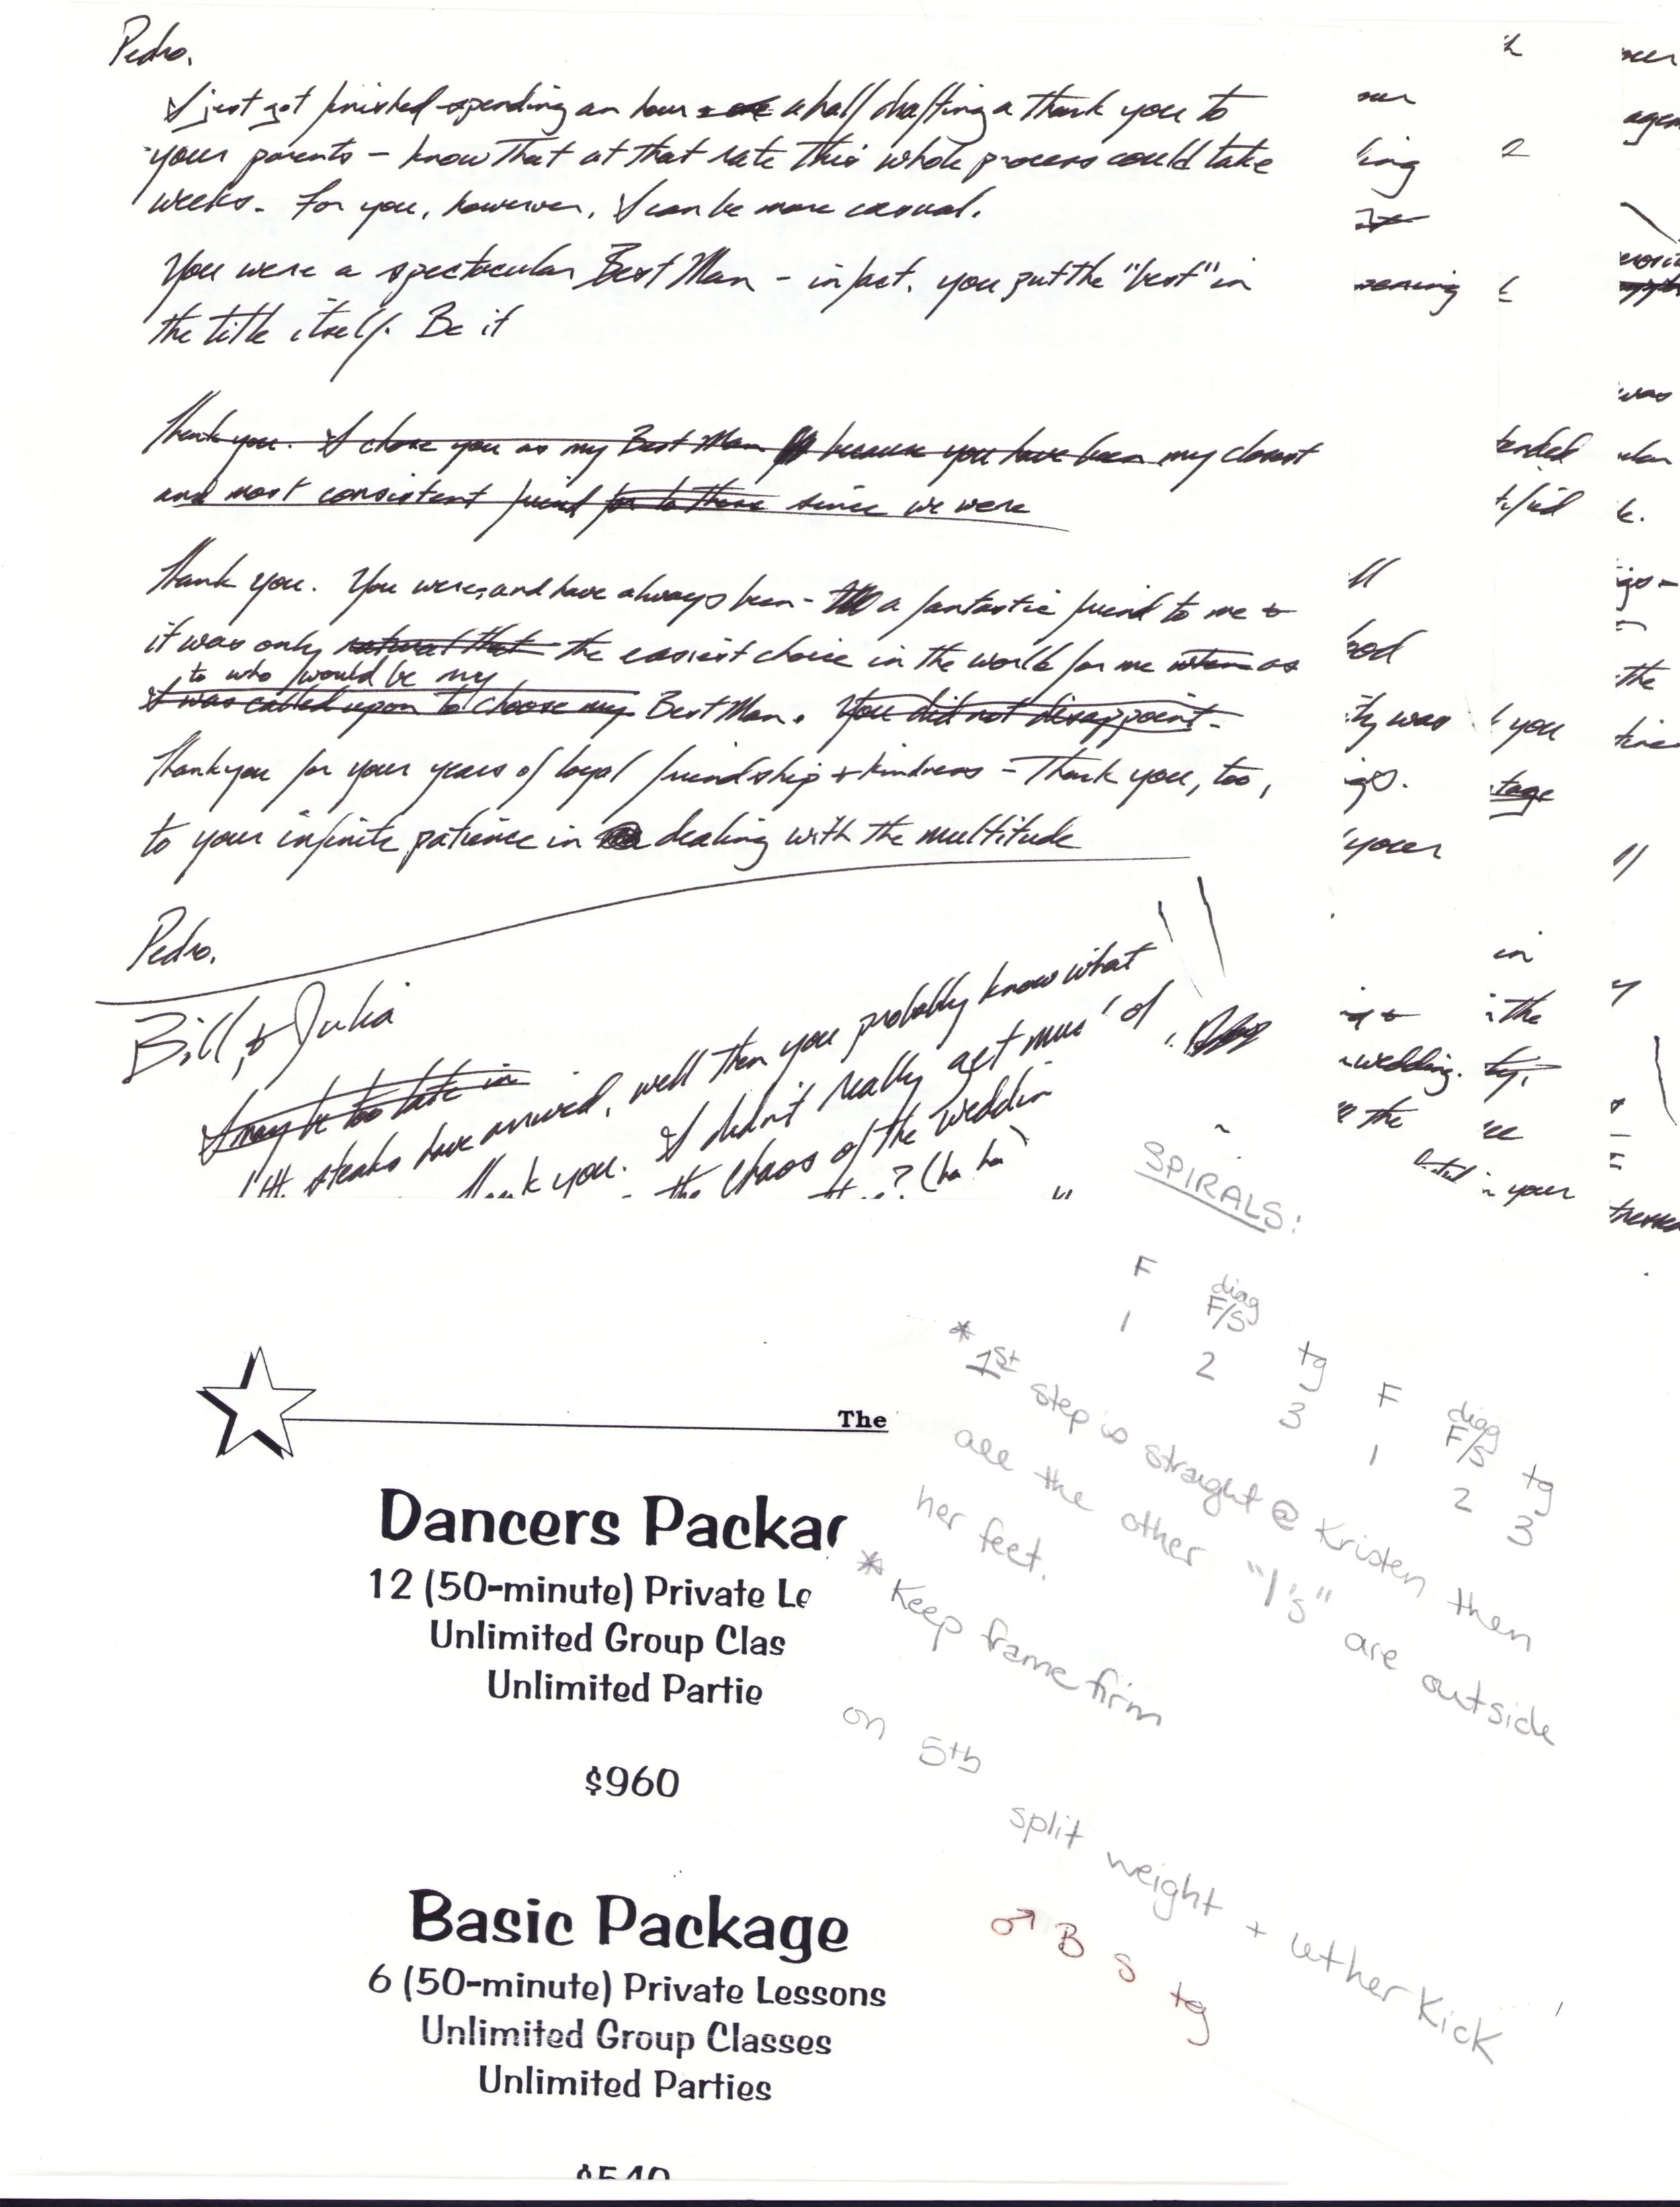 Pedro,
I just got finished spending an hour a half drafting a thank you to
your parents – know that at that rate this whole process could take
weeks. For you, however, I can be more casual.
You were a spectacular Best Man – in fact, you put the "best" in
the title itself. Be it
Thank you. I chose you as my Best Man because you have been my closest
and most consistent friend for to these since we were
Thank you. You were, and have always been – a fantastic friend to me &
it was only natural that the easiest choice in the world for me when as
to who would be my
I was called upon to choose my Best Man. You did not disappoint.
Thank you for your years of loyal friendship & kindness – Thank you, too,
to your infinite patience in dealing with the multitude
Pedro,
Bill & Julia
I may be too late in
steaks have arrived, well then you probably know what
thank you. I didn't really get of
the chaos of the weddin
(ha ha
ling
ity was
your
wedding.
the
you
tage
in
the
your
was
the
SPIRALS:
F diag F/S tg F diag F/S tg
1 2 3 1 2 3
* 1st step is straight @ Kristen then
all the other "1's" are outside
her feet.
* Keep frame firm
on 5th
split weight + uther Kick
♂ B S tg
The
Dancers Packag
12 (50-minute) Private Le
Unlimited Group Clas
Unlimited Partie
$960
Basic Package
6 (50-minute) Private Lessons
Unlimited Group Classes
Unlimited Parties
$540